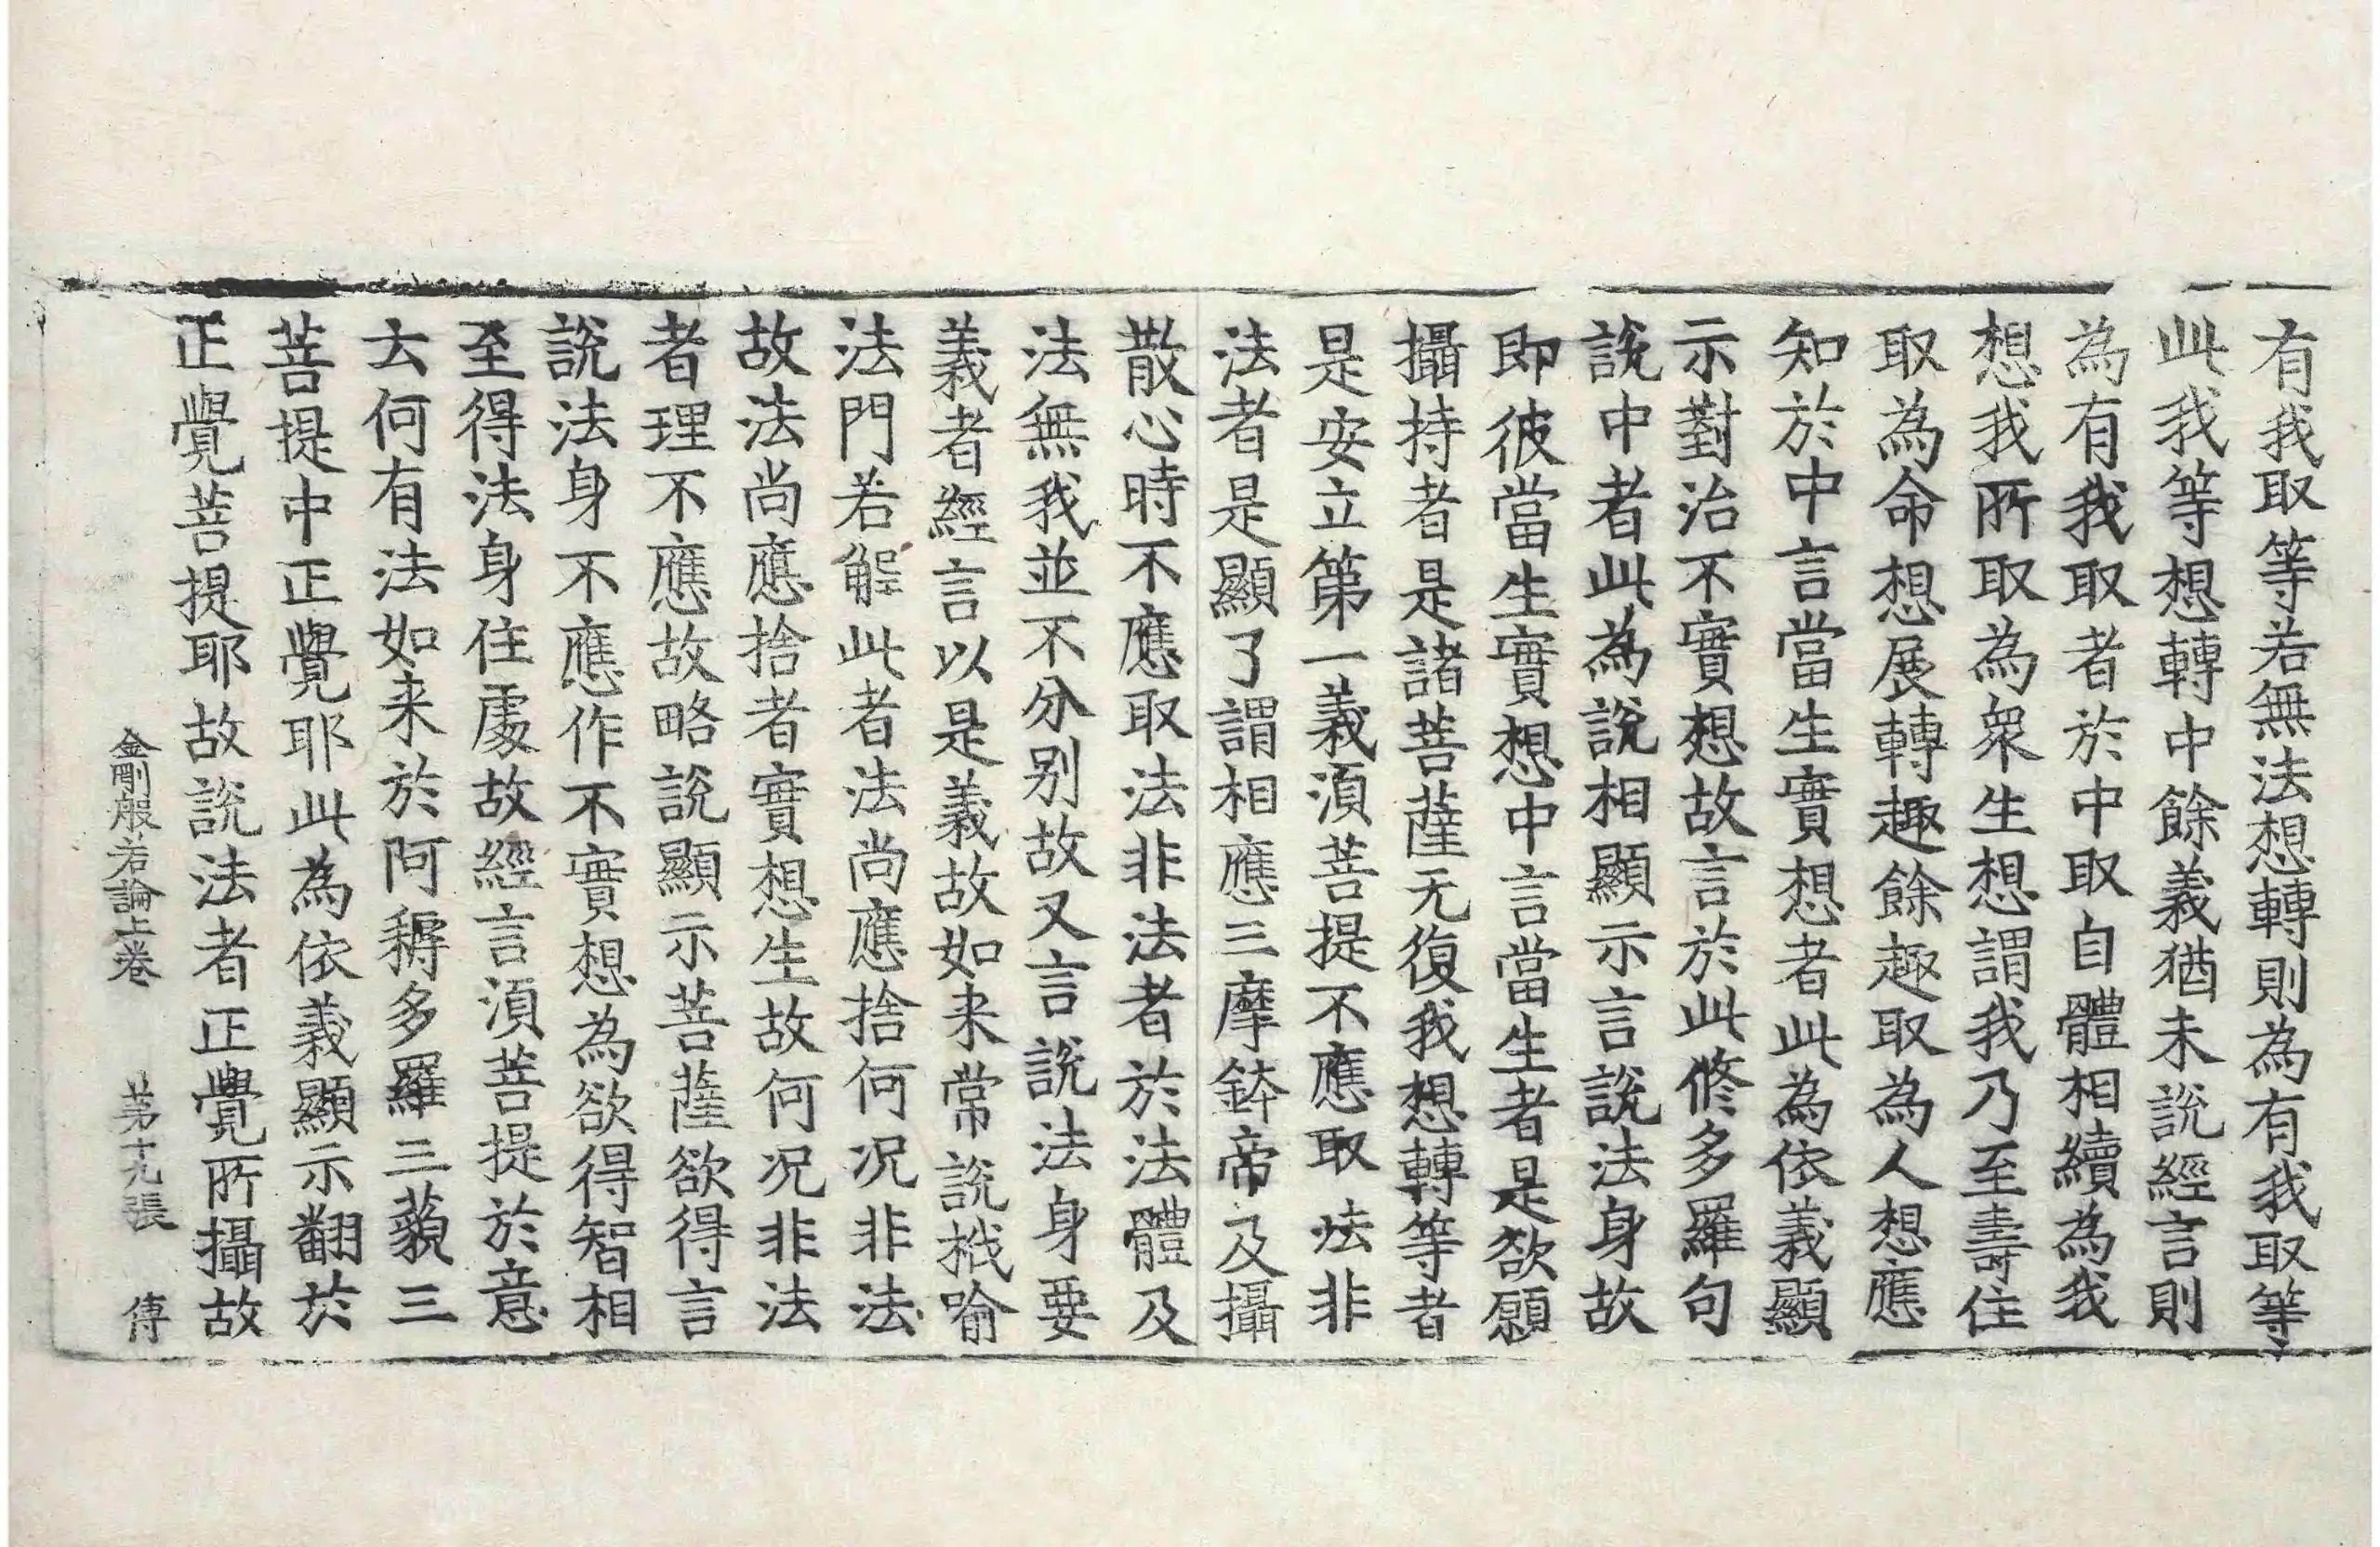 有我取等若無法想轉則為有我取等
此我等想轉中餘義猶未說經言則
為有我取者於中取自體相續為我
想我所取為衆生想謂我乃至壽住
取為命想展轉趣餘趣取為人想應
知於中言當生實想者此為依義顯
示對治不實想故言於此修多羅句
說中者此為說相顯示言說法身故
即彼當生實想中言當生者是欲願
攝持者是諸菩薩无復我想轉等者
是安立第一義湏菩提不應取法非
法者是顯了謂相應三摩鉢帝及攝
散心時不應取法非法者於法體及
法無我並不分别故又言說法身要
義者經言以是義故如来常說栰喻
法門若解此者法尚應捨何况非法
故法尚應捨者實想生故何况非法
者理不應故略說顯示菩薩欲得言
說法身不應作不實想為欲得智相
至得法身住處故經言湏菩提於意
云何有法如来於阿耨多羅三藐三
菩提中正覺耶此為依義顯示翻於
正覺菩提耶故說法者正覺所攝故
金剛般若論上卷 苐十九張 傳